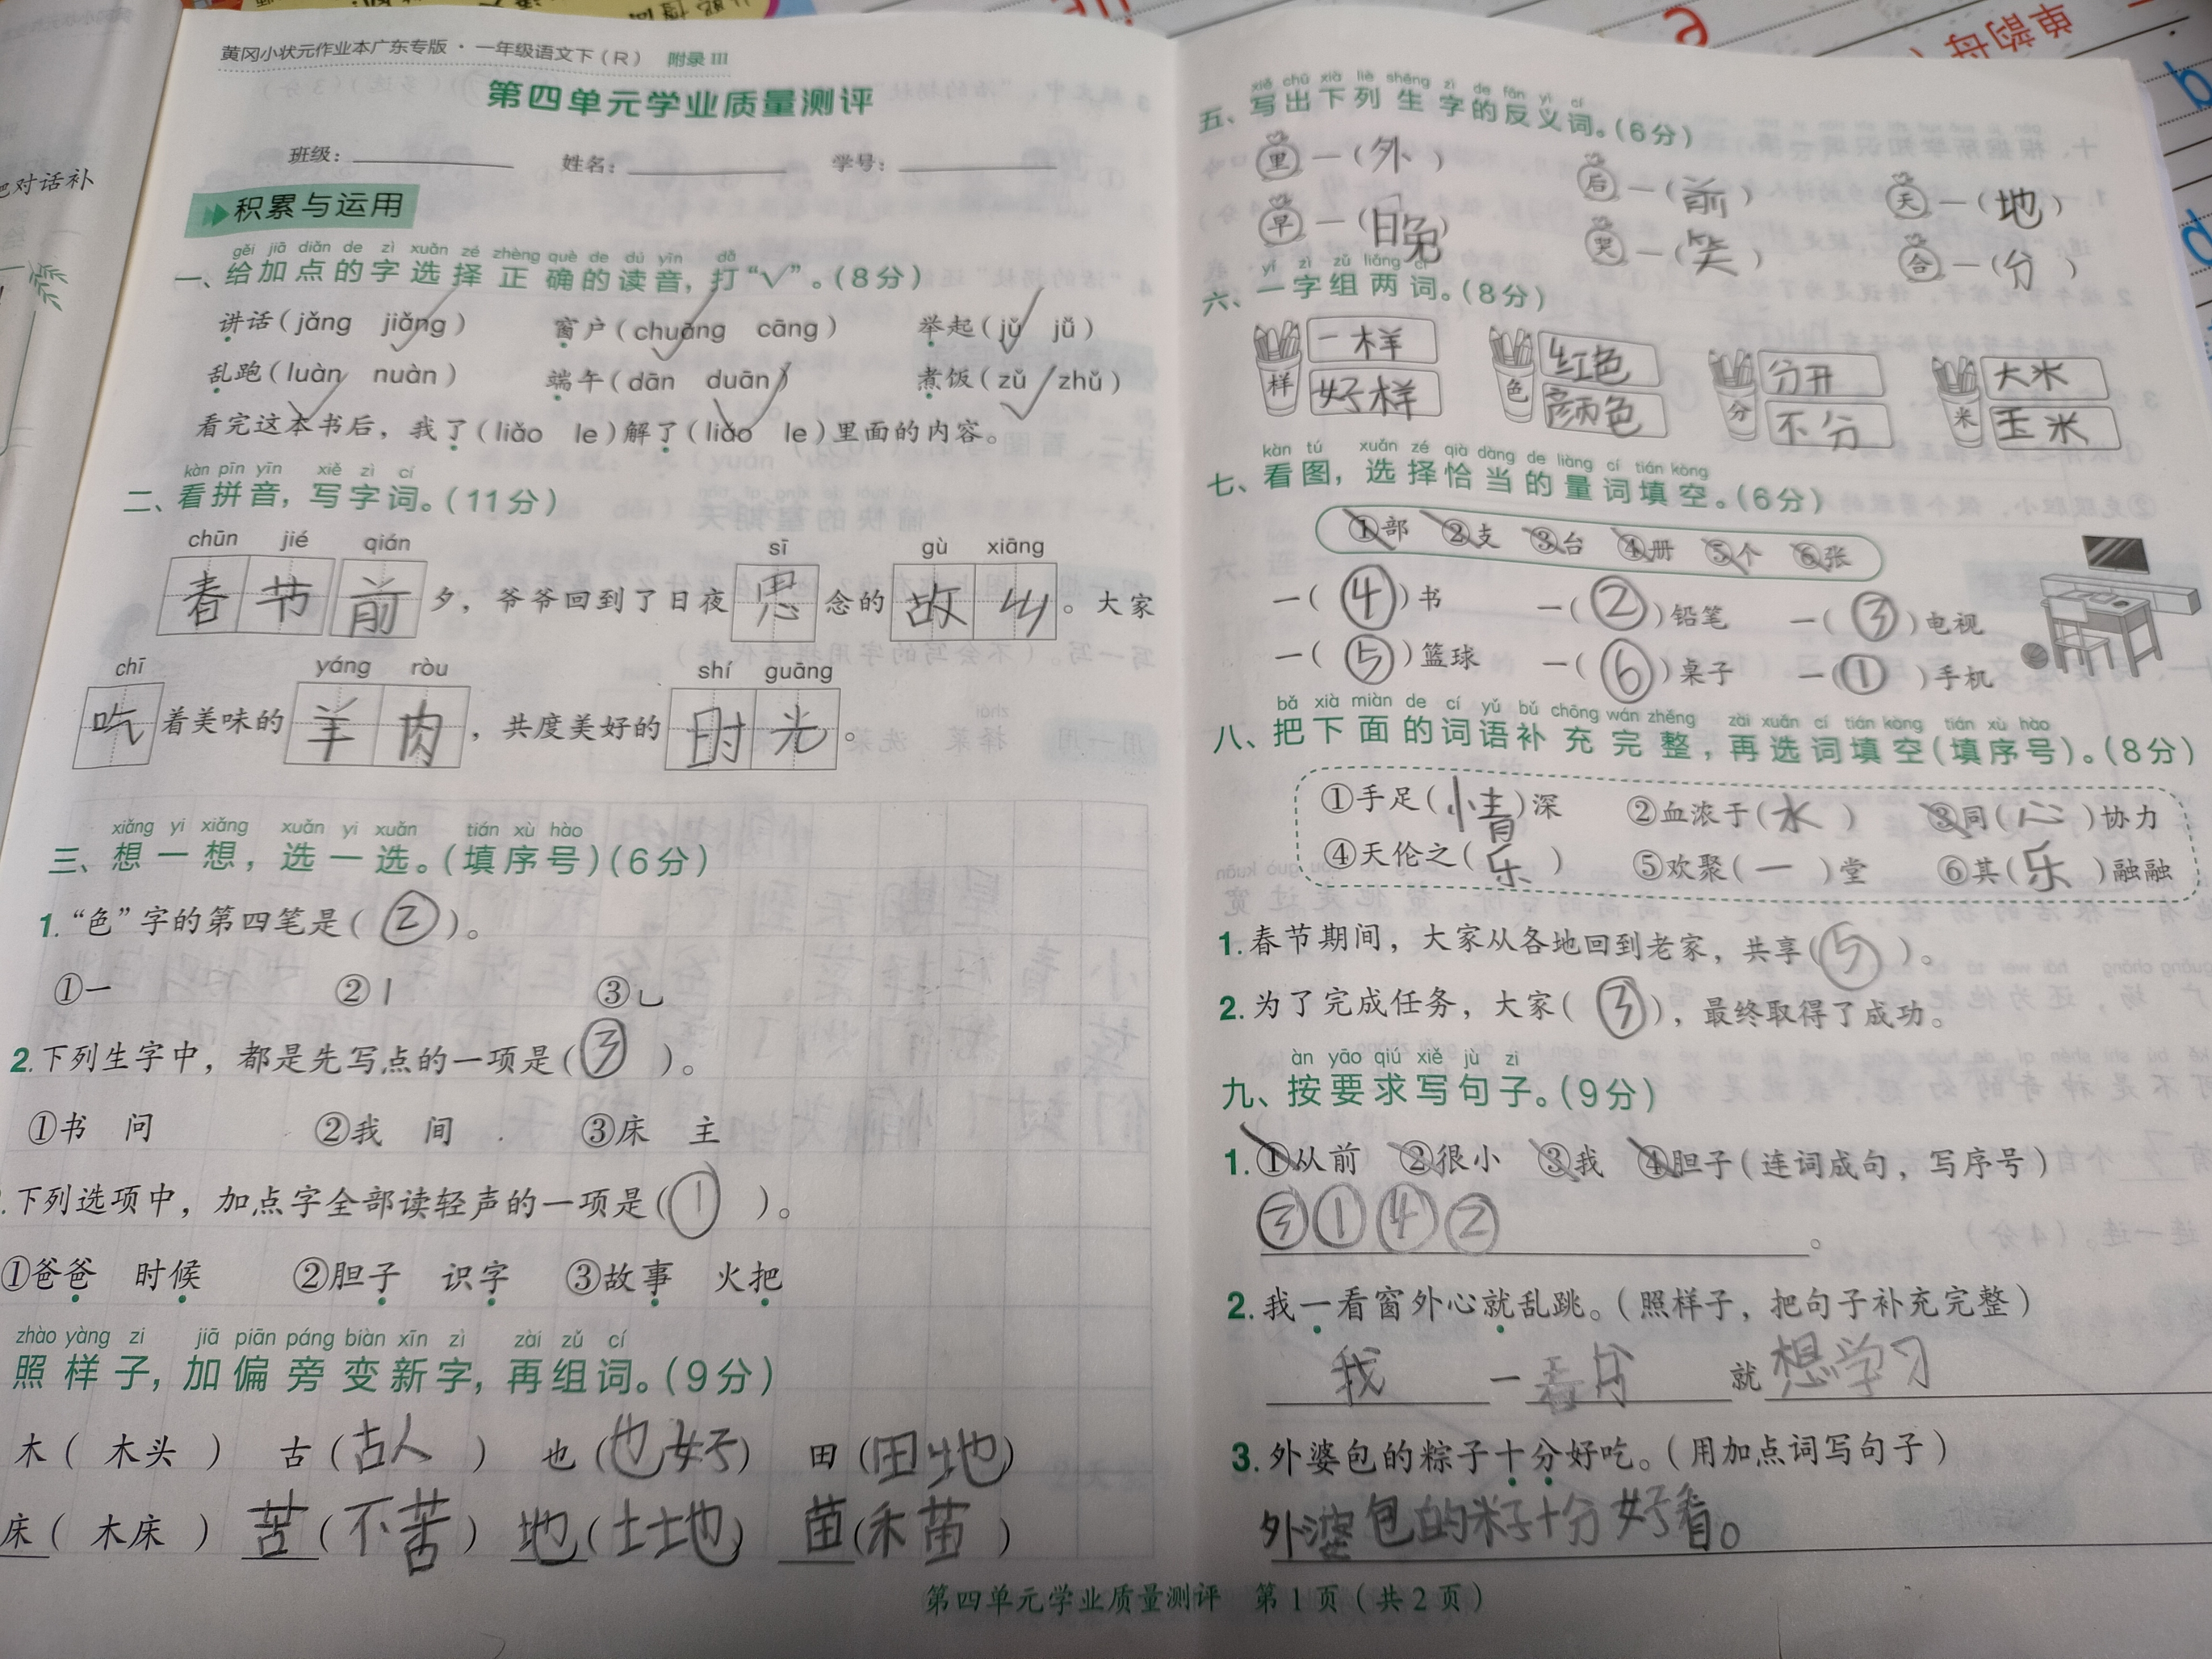 黄冈小状元作业本广东专版·一年级语文下(R) 附录III
第四单元学业质量测评
班级: 姓名: 学号:
积累与运用
gěi jiā diǎn de zì xuǎn zé zhèng què de dú yīn dǎ
一、给加点的字选择正确的读音,打“√”。(8分)
讲话(jǎng jiǎng) 窗户(chuāng cāng) 举起(jǔ jǚ)
乱跑(luàn nuàn) 端午(dān duān) 煮饭(zǔ zhǔ)
看完这本书后,我了(liǎo le)解了(liǎo le)里面的内容。
kàn pīn yīn xiě zì cí
二、看拼音,写字词。(11分)
chūn jié qián sī gù xiāng
春节前夕,爷爷回到了日夜思念的故乡。大家
chī yáng ròu shí guāng
吃着美味的羊肉,共度美好的时光。
xiǎng yi xiǎng xuǎn yi xuǎn tián xù hào
三、想一想,选一选。(填序号)(6分)
1.“色”字的第四笔是(②)。
①一 ②丨 ③乚
2.下列生字中,都是先写点的一项是(③)。
①书 问 ②我 间 ③床 主
.下列选项中,加点字全部读轻声的一项是(①)。
①爸爸 时候 ②胆子 识字 ③故事 火把
zhào yàng zi jiā piān páng biàn xīn zì zài zǔ cí
照样子,加偏旁变新字,再组词。(9分)
木(木头) 古(古人) 也(也好) 田(田地)
床(木床) 苦(不苦) 地(土地) 苗(禾苗)
xiě chū xià liè shēng zì de fǎn yì cí
五、写出下列生字的反义词。(6分)
里—(外) 后—(前) 天—(地)
早—(晚) 哭—(笑) 合—(分)
yí zì zǔ liǎng cí
六、一字组两词。(8分)
样 一样 色 红色 分 分开 米 大米
好样 颜色 不分 玉米
kàn tú xuǎn zé qià dàng de liàng cí tián kòng
七、看图,选择恰当的量词填空。(6分)
①部 ②支 ③台 ④册 ⑤个 ⑥张
一(④)书 一(②)铅笔 一(③)电视
一(⑤)篮球 一(⑥)桌子 一(①)手机
bǎ xià miàn de cí yǔ bǔ chōng wán zhěng zài xuǎn cí tián kòng tián xù hào
八、把下面的词语补充完整,再选词填空(填序号)。(8分)
①手足(情)深 ②血浓于(水) ③同(心)协力
④天伦之(乐) ⑤欢聚(一)堂 ⑥其(乐)融融
1.春节期间,大家从各地回到老家,共享(⑤)。
2.为了完成任务,大家(③),最终取得了成功。
àn yāo qiú xiě jù zi
九、按要求写句子。(9分)
1.①从前 ②很小 ③我 ④胆子(连词成句,写序号)
③①④②。
2.我一看窗外心就乱跳。(照样子,把句子补充完整)
我一看书就想学习
3.外婆包的粽子十分好吃。(用加点词写句子)
外婆包的粽子十分好看。
第四单元学业质量测评 第1页(共2页)
把对话补
单韵母